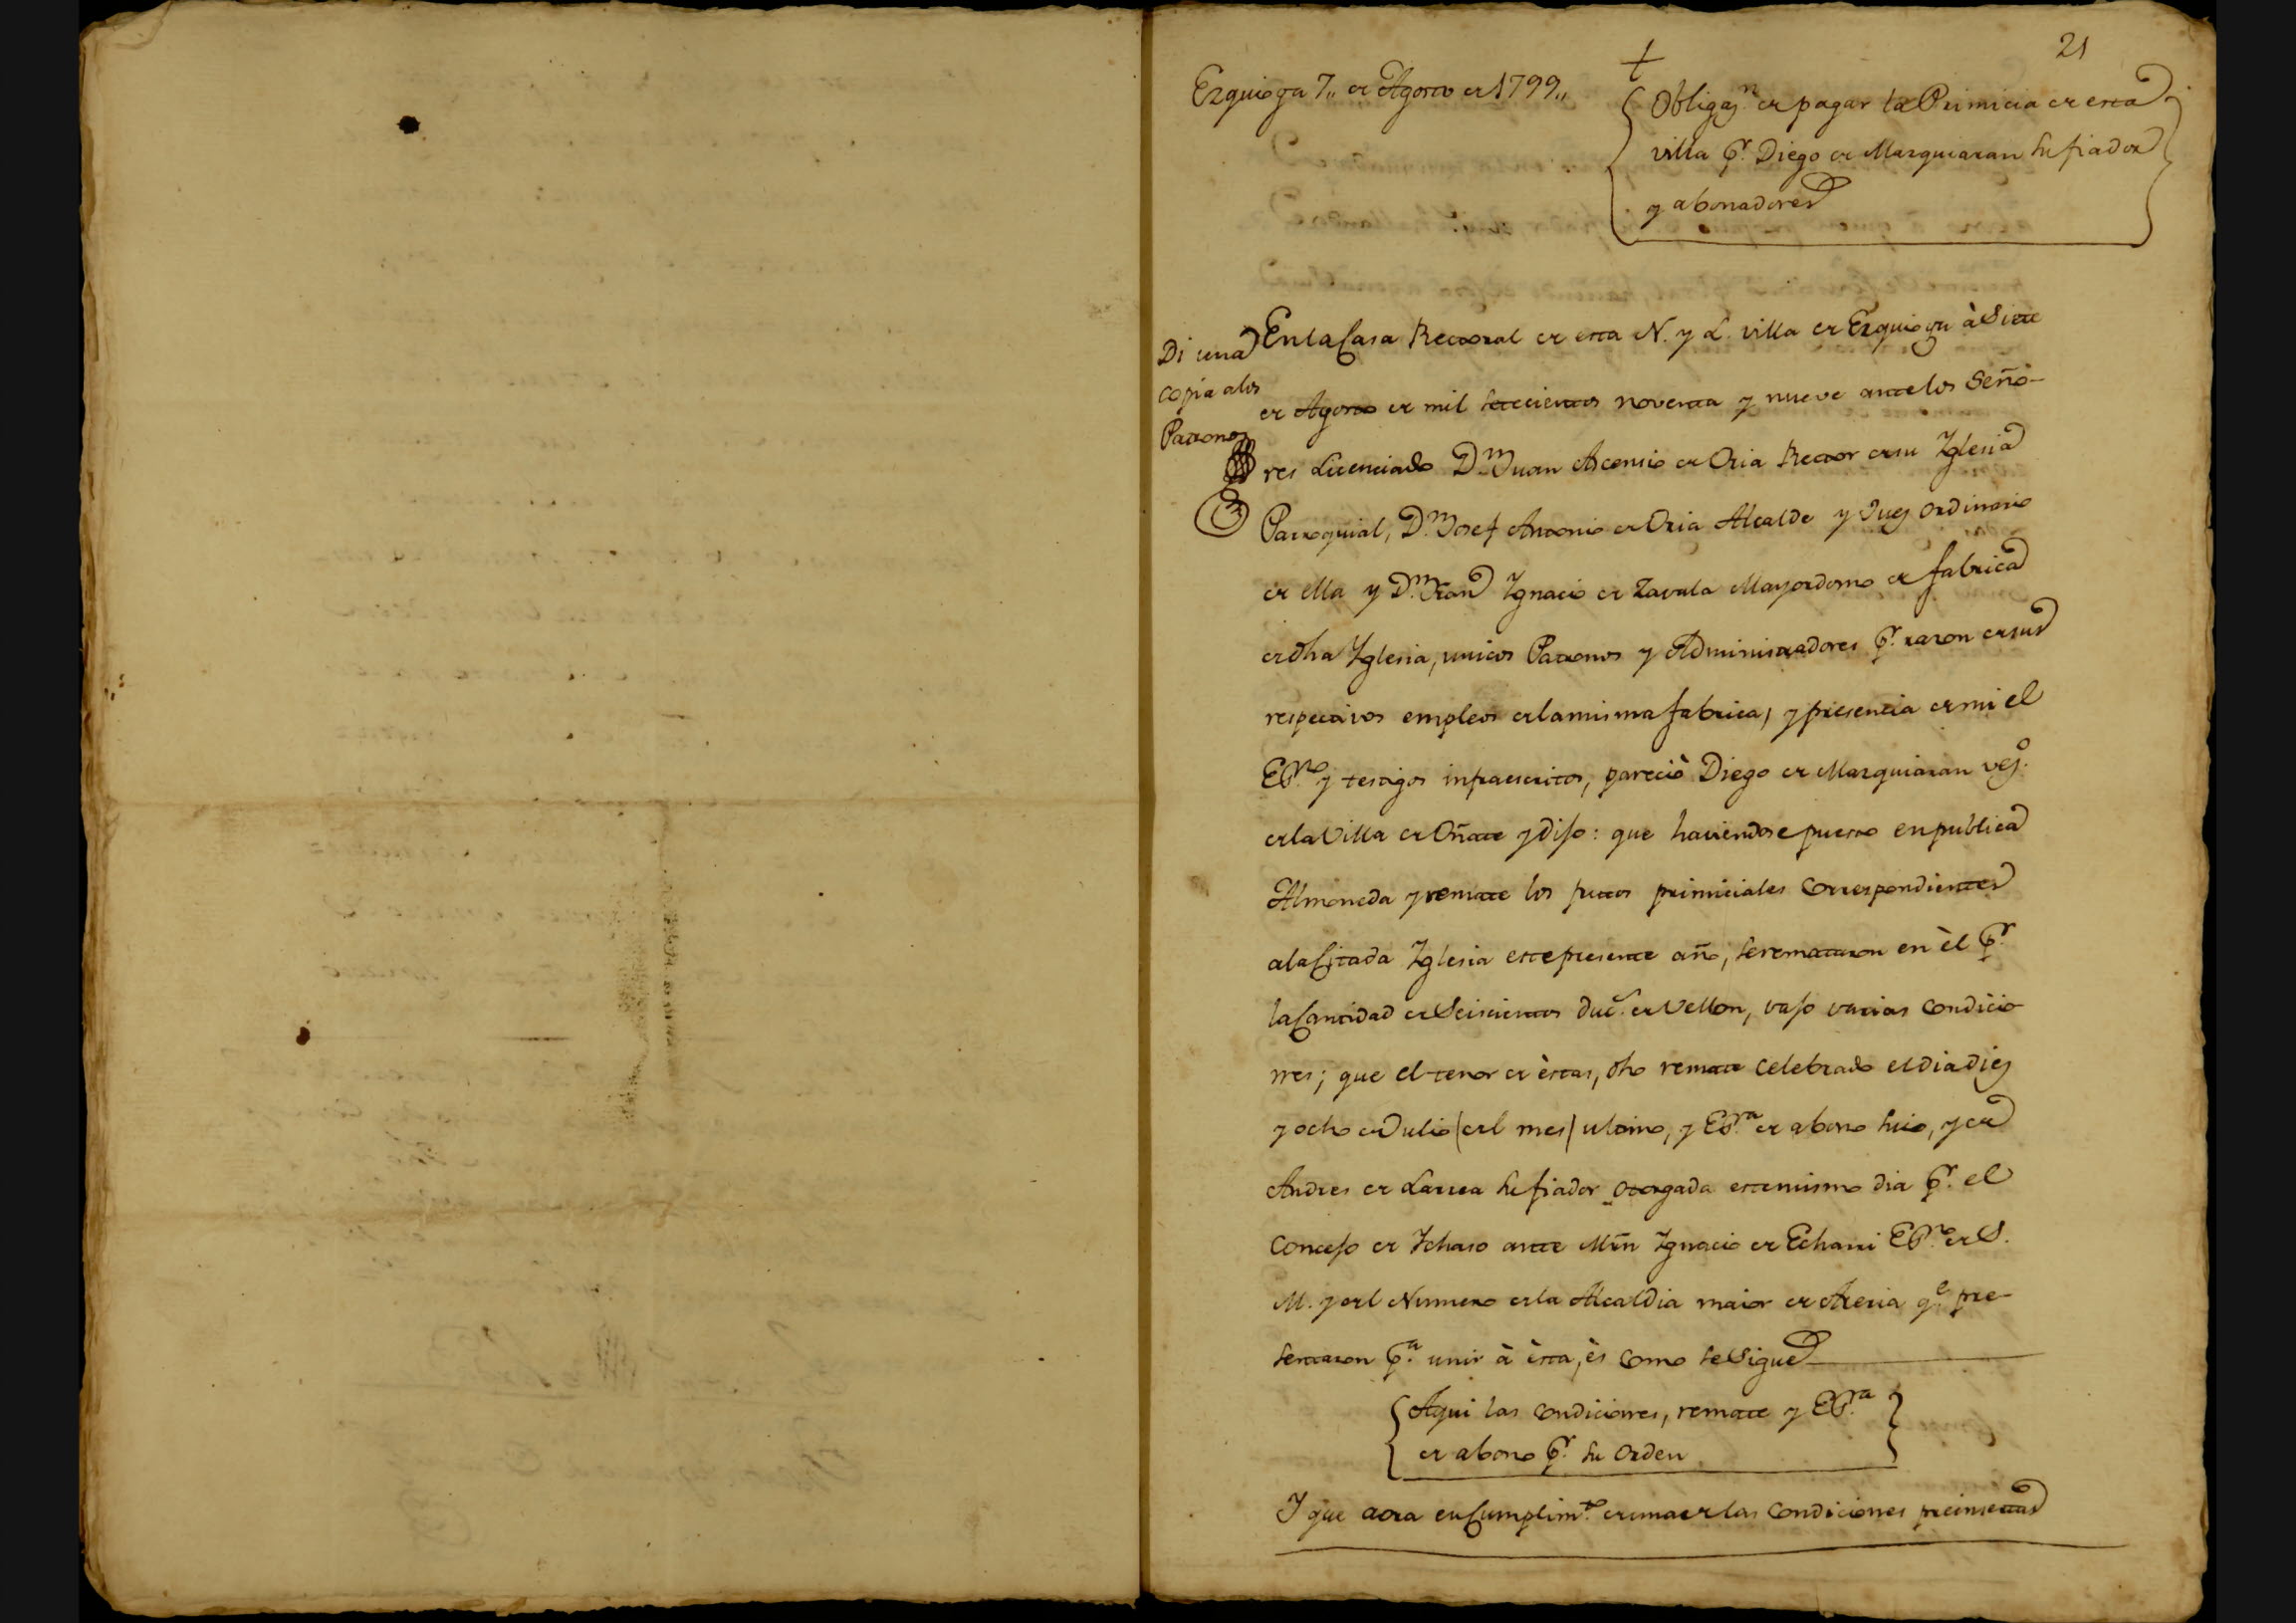 21
+
Ezquioga 7,, de Agosto de 1799,,
Obligazn de pagar la Primicia de esta
villa pr. Diego de Marquiaran su fiador
y abonadores
Di una
copia alos
Patronos
En la Casa Rectoral de esta N. y L. villa de Ezquioga à Siete
de Agosto de mil setecientos noventa y nueve ante los Seño-
res Licenciado Dn. Juan Ascensio de Oria Rector de su Iglesia
Parroquial, Dn. Josef Antonio de Oria Alcalde y Juez ordinario
de ella y Dn. Fran Ignacio de Zavala Mayordomo de fabrica
de dha Iglesia, unicos Patronos y Administradores pr. razon de sus
respectivos empleos de la misma fabrica, y presencia de mi el
Essno. y testigos infraescritos, pareciò Diego de Marquiaran vezo.
de la Villa de Oñate y dijo: que haviendose puesto en publica
Almoneda y remate los frutos primiciales correspondientes
ala Citada Iglesia este presente año, se remataron en èl pr.
la Cantidad de Seiscientos duc.s de Vellon, vajo varias condicio
nes; que el tenor de èstas, dho remate celebrado el dia diez
y ocho de Julio (del mes) ultimo, y Essra. de abono suio, y de
Andres de Larrea su fiador otorgada este mismo dia pr. el
Concejo de Ichaso ante Mrn Ignacio de Echarri Essno. de S.
M. y del Numero de la Alcaldia maior de Areria qe. pre-
sentaron pa. unir à èsta, ès como se Sigue
Aqui las condiciones, remate y Essra.
de abono pr. su orden
I que aora en Cumplimto. de una de las condiciones preinsertas